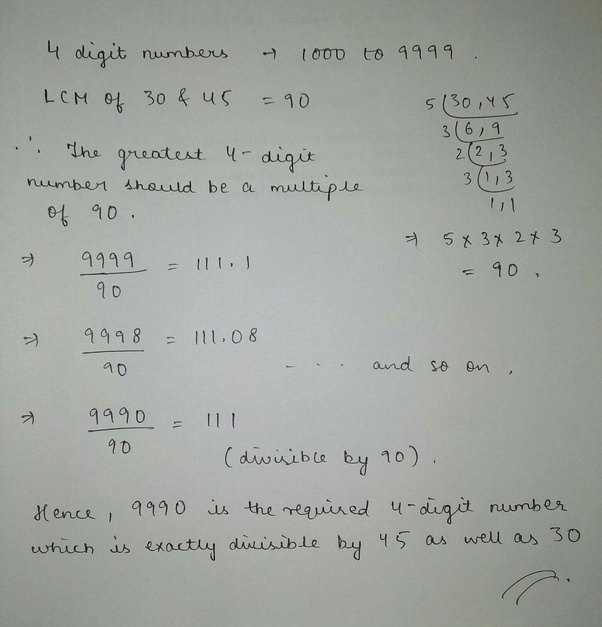 4 digit numbers → 1000 to 9999 .
LCM of 30 & 45 = 90
∴ The greatest 4-digit
number should be a multiple
of 90 .
5 | 30, 45
3 | 6, 9
2 | 2, 3
3 | 1, 3
1, 1
⇒ 5 x 3 x 2 x 3
= 90 .
⇒ 9999/90 = 111.1
⇒ 9998/90 = 111.08
- - - and so on ,
⇒ 9990/90 = 111
(divisible by 90) .
Hence, 9990 is the required 4-digit number
which is exactly divisible by 45 as well as 30